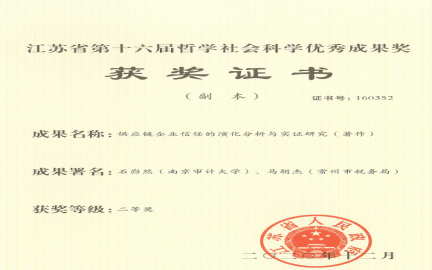 江苏省第十六届哲学社会科学优秀成果奖
获奖证书
（副 本）
证书号：160352
成果名称：供应链企业信任的演化分析与实证研究（著作）
成果署名：石岿然（南京审计大学）、马胡杰（常州市税务局）
获奖等级：二等奖
江苏省人民政府
年十二月